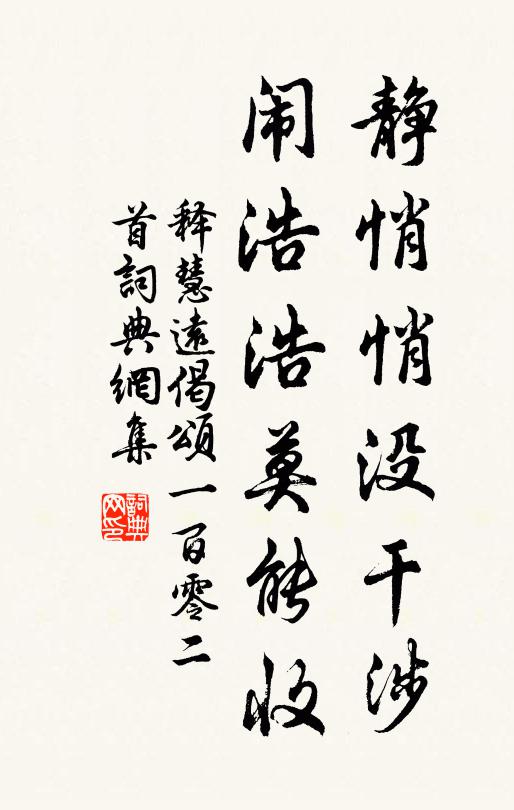 静悄悄没干涉
闹浩浩莫能收
释慧遠偈頌一百零二
首詞典網集
詞典网印